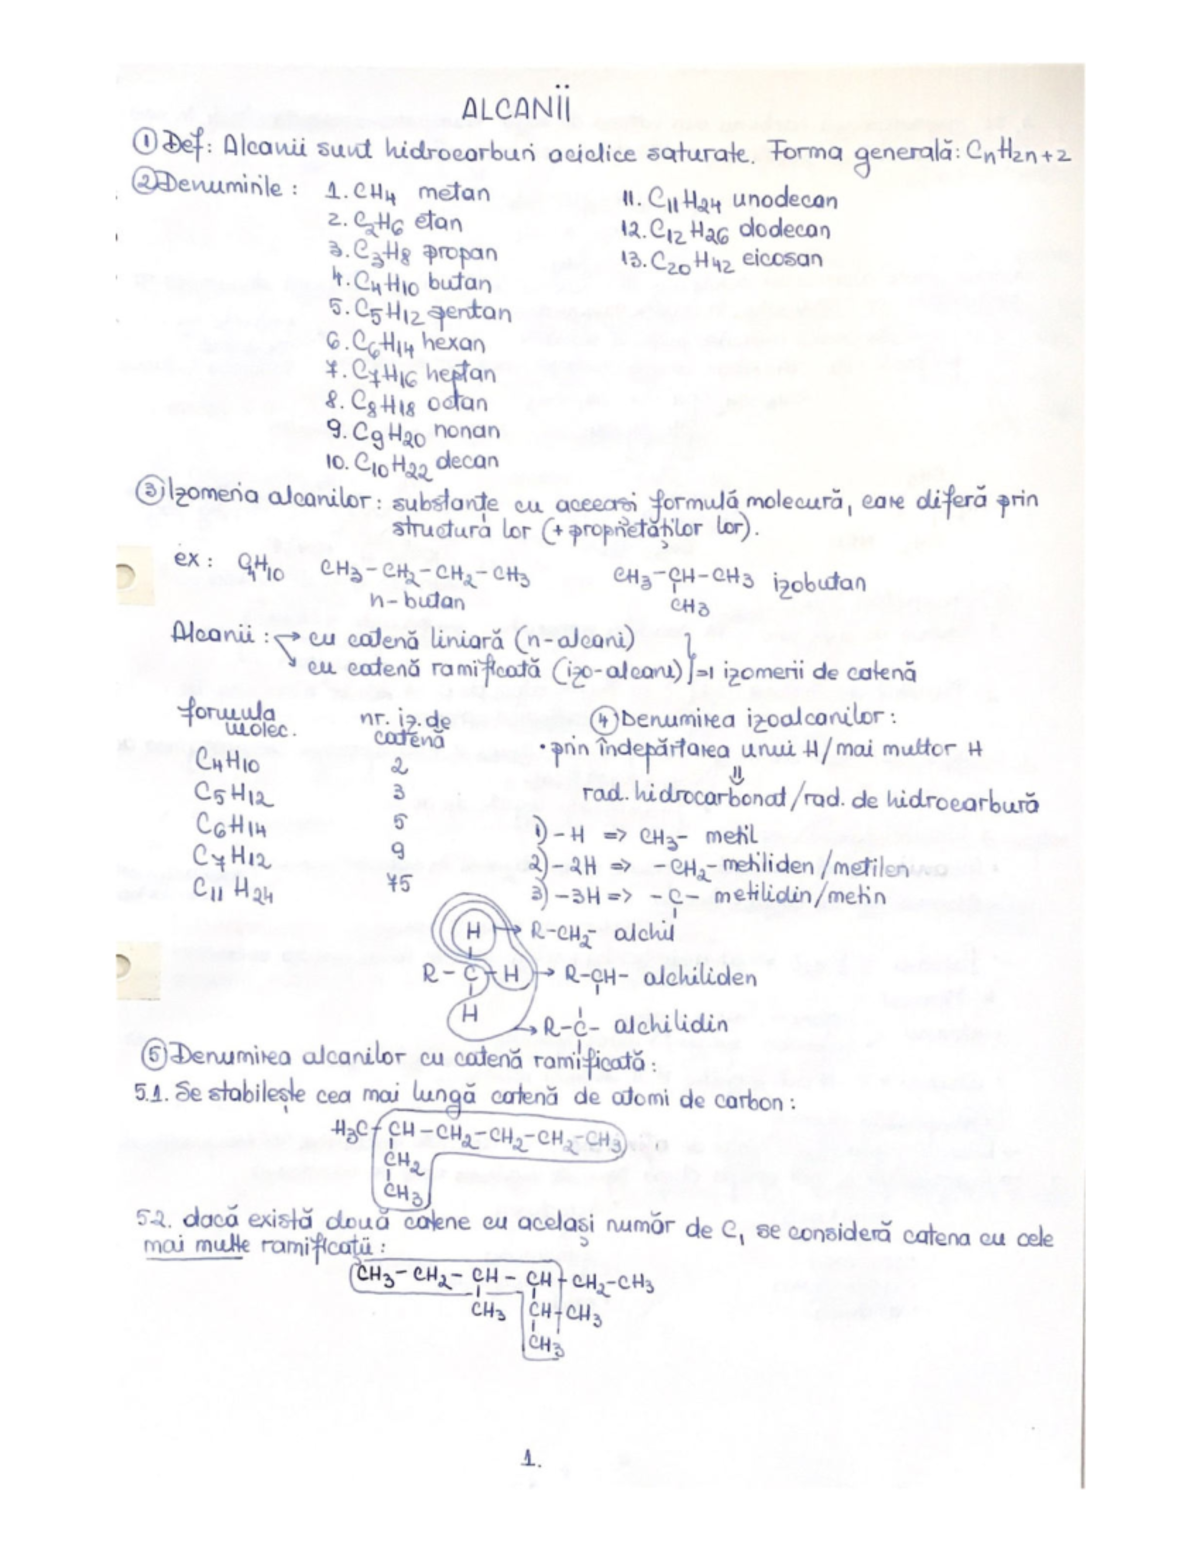 ALCANII
① Def: Alcanii sunt hidrocarburi aciclice saturate. Forma generală: CnH2n+2
② Denumirile: 1. CH4 metan
2. C2H6 etan
3. C3H8 propan
4. C4H10 butan
5. C5H12 pentan
6. C6H14 hexan
7. C7H16 heptan
8. C8H18 octan
9. C9H20 nonan
10. C10H22 decan
11. C11H24 unodecan
12. C12H26 dodecan
13. C20H42 eicosan
③ Izomeria alcanilor: substanțe cu aceeași formulă molecură, care diferă prin
structura lor (+ proprietăților lor).
ex: C4H10 CH3-CH2-CH2-CH3 CH3-CH-CH3 izobutan
n-butan CH3
Alcanii: → cu catenă liniară (n-alcani)
↘ cu catenă ramificată (izo-alcani) } => izomerii de catenă
formula molec. nr. iz. de catenă
C4H10 2
C5H12 3
C6H14 5
C7H12 9
C11H24 75
④ Denumirea izoalcanilor:
• prin îndepărtarea unui H/mai multor H
⇓
rad. hidrocarbonat/rad. de hidrocarbură
1) -H => CH3- metil
2) -2H => -CH2- metiliden/metilen
3) -3H => -C- metilidin/metin
H → R-CH2- alchil
R-C-H → R-CH- alchiliden
H → R-C- alchilidin
⑤ Denumirea alcanilor cu catenă ramificată:
5.1. Se stabilește cea mai lungă catenă de atomi de carbon:
H3C-CH-CH2-CH2-CH2-CH3
CH2
CH3
5.2. dacă există două catene cu același număr de C, se consideră catena cu cele
mai multe ramificații:
CH3-CH2-CH-CH-CH2-CH3
CH3 CH-CH3
CH3
1.